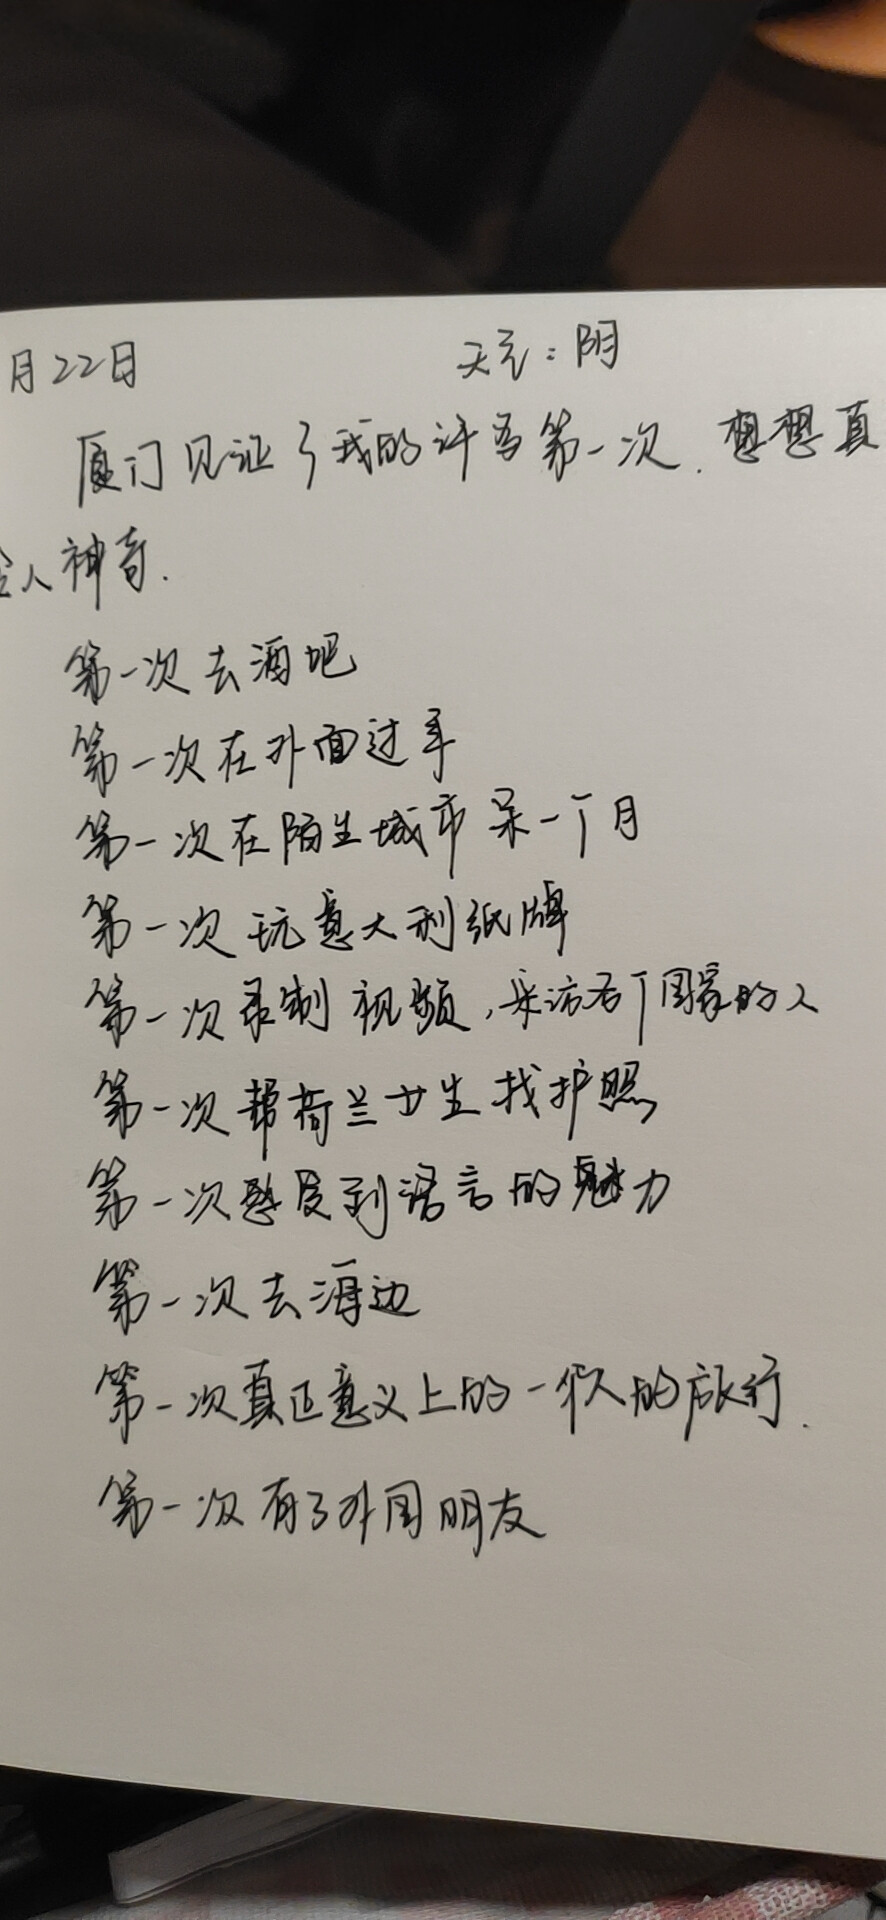 月22日 天气:阴
厦门见证了我的许多第一次.想想真
令人神奇.
第一次去酒吧
第一次在外面过年
第一次在陌生城市呆一个月
第一次玩意大利纸牌
第一次录制视频,采访各个国家的人
第一次帮荷兰女生找护照
第一次感受到语言的魅力
第一次去海边
第一次真正意义上的一个人的旅行.
第一次有了外国朋友